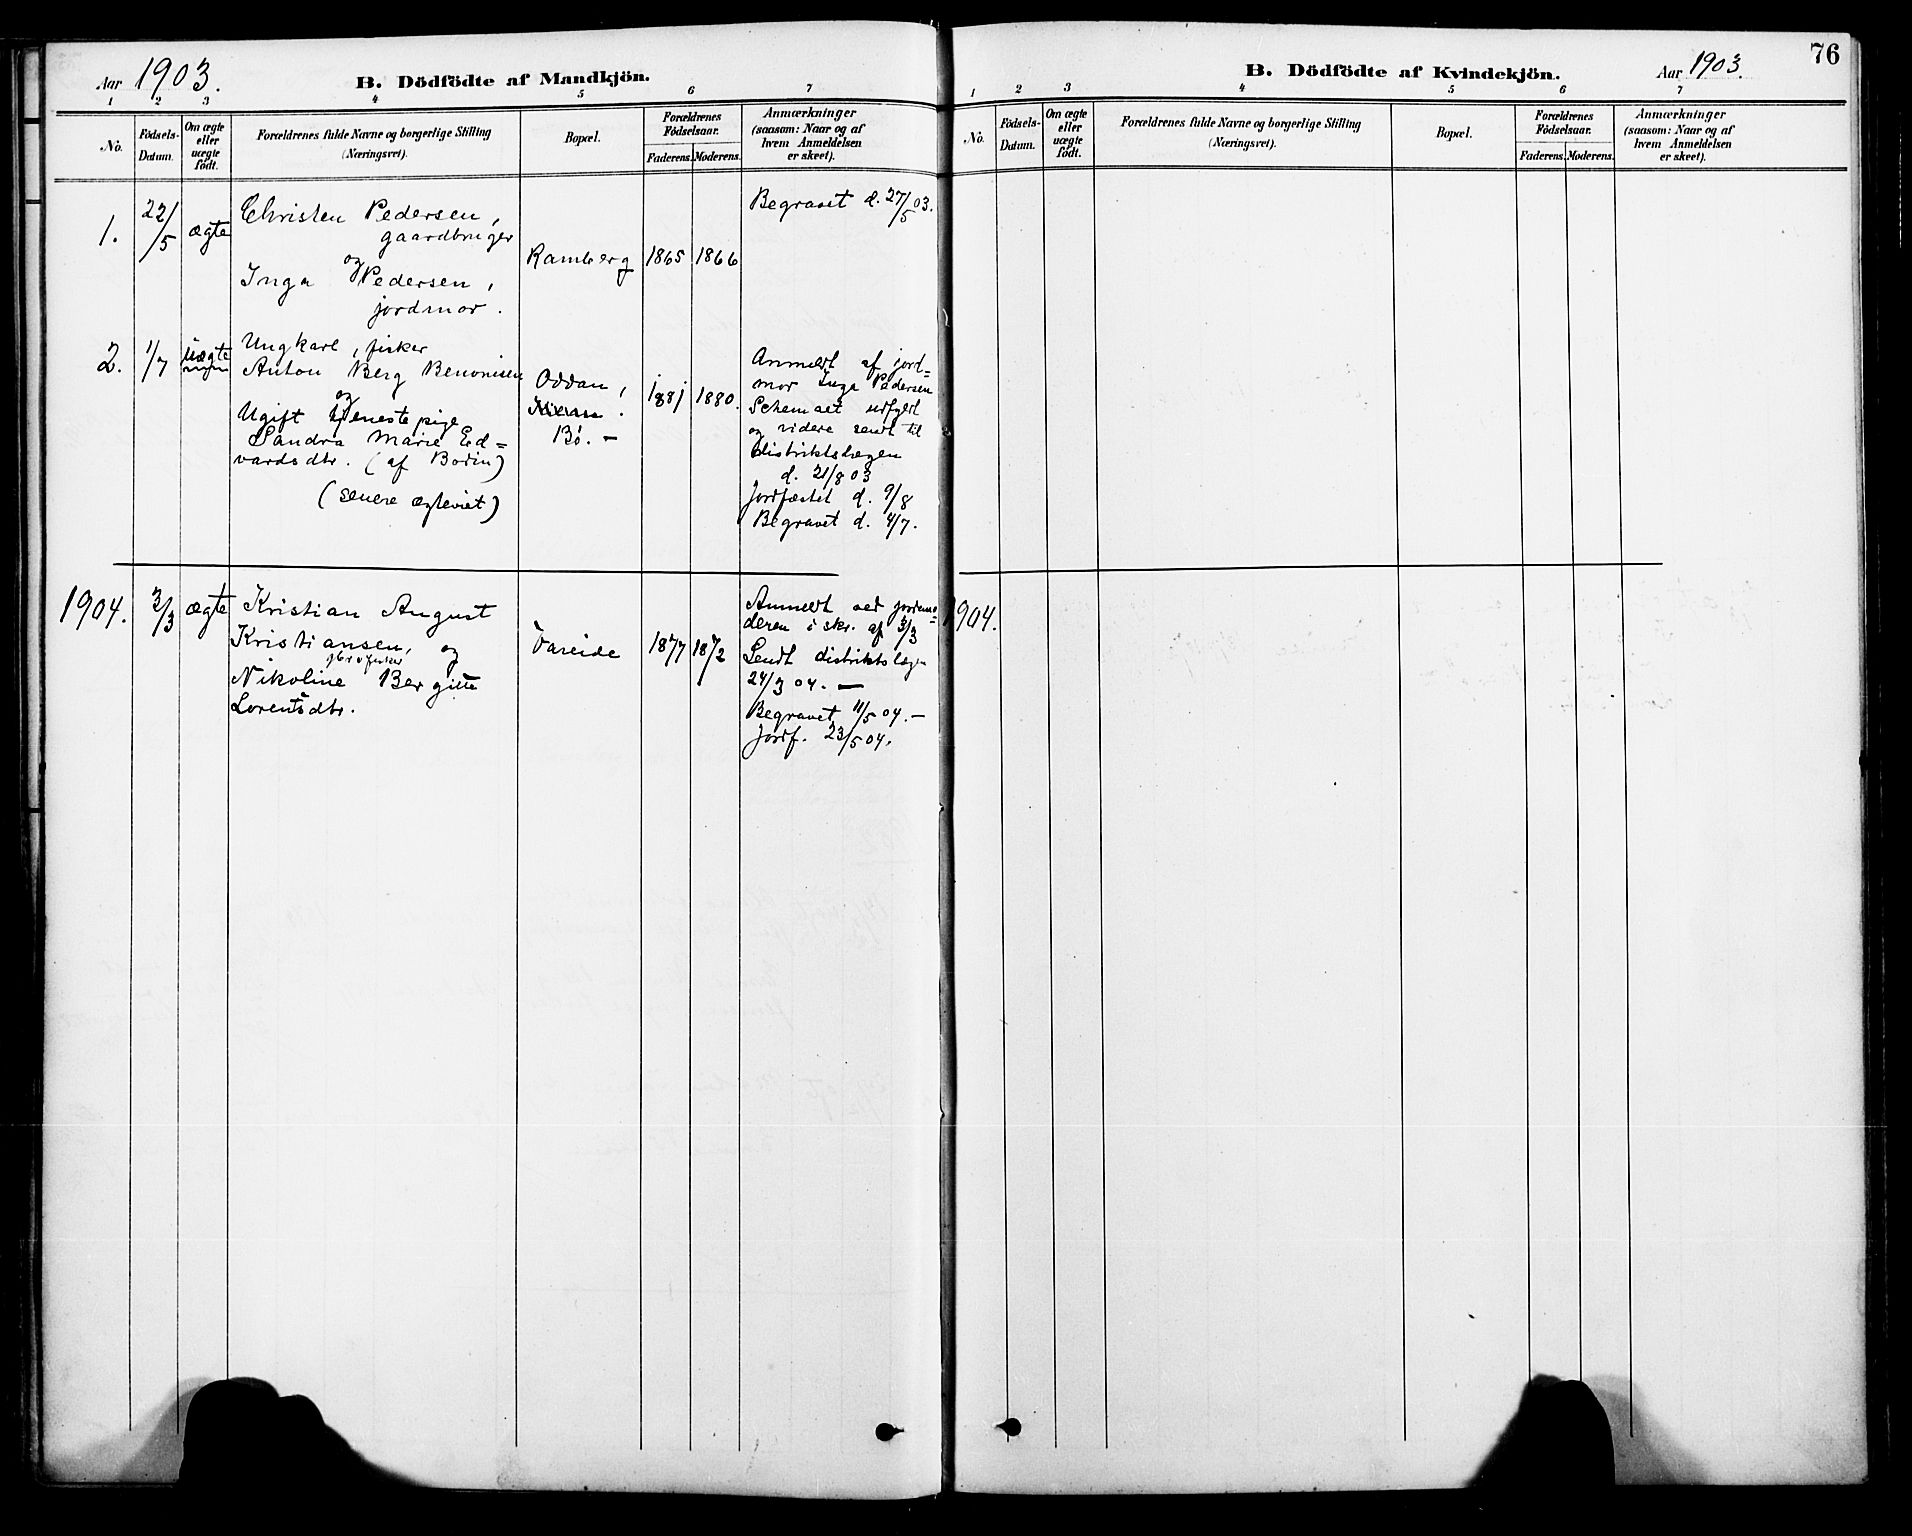 Aar 1903.
B. Dödfödte af Mandkjön.
1 2 3 4 5 6 7
No.
Födsels-
Datum.
Om ægte
eller
uægte
födt.
Forældrenes fulde Navne og borgerlige Stilling
(Næringsvei).
Bopæl.
Forældrenes
Födselsaar.
Faderens. Moderens.
Anmærkninger
(saasom: Naar og af
hvem Anmeldelsen
er skeet).
1.
22/
/5
ægte
Christen Pedersen,
gaardbruger
og
Inga Pedersen,
jordmor.
Ramberg
1865 1866
Begravet d. 27/5 03.
2.
1/7
uægte
Ungkarl, fisker
Anton Berg Benonisen
og
Ugift tjenestepige
Sandra Marie Ed=
vardsdtr. (af Bodin)
(senere ægteviet)
Oddan,
Bö. –
1881 1880.
Anmeldt af jord=
mor Inga Pedersen
Schemaet udfyldt
og videre sendt til
distriktslægen
d. 21/8 03
Jordfæstet d. 9/8
Begravet d. 4/7.
1904.
3/3
ægte
Kristian August
Kristiansen, og
gbr. o fisker
Nikoline Bergitte
Lorentsdtr.
Vareide
1877 1872
Anmeldt ved jordmo=
deren i skr. af 3/3
Sendt distriktslægen
24/3 04. –
Begravet 11/5 04. –
Jordf. 23/5 04.
76
B. Dödfödte af Kvindekjön.
Aar 1903.
1 2 3 4 5 6 7
No.
Födsels-
Datum.
Om ægte
eller
uægte
födt.
Forældrenes fulde Navne og borgerlige Stilling
(Næringsvei).
Bopæl.
Forældrenes
Födselsaar.
Faderens. Moderens.
Anmærkninger
(saasom: Naar og af
hvem Anmeldelsen
er skeet).
1904.